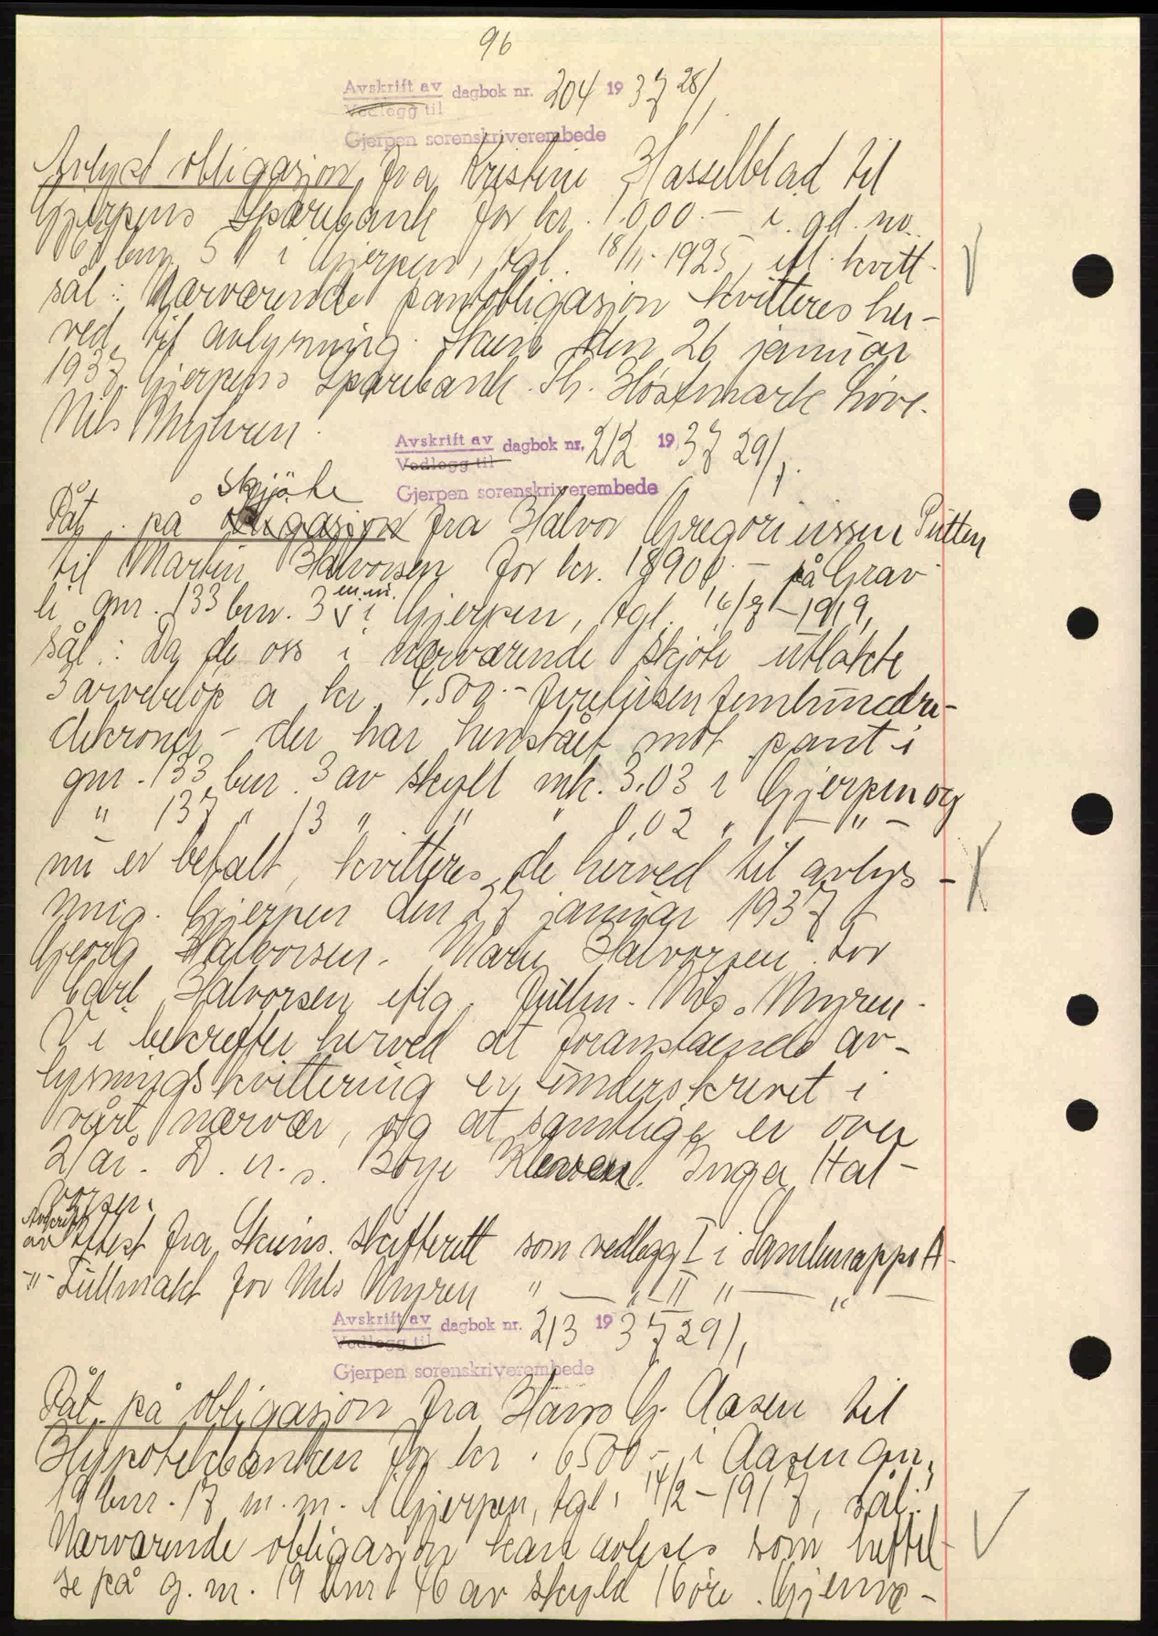 96
Avskrift av dagbok nr. 204 1937 28/1
Vedlegg til
Gjerpen sorenskriverembede
Avlyst obligasjon fra Kristine Hasselblad til
Gjerpens Sparebank for kr. 1.000.- i gd. no.
bnr. 5 i Gjerpen, tgl. 18/11-1925, m. kvitt.
sål: Nærværende pantobligasjon kvitteres her-
ved til avlysning. Skien den 26 januar
1937. Gjerpens Sparebank. Th. Høstmark Hove.
Nils Myhren.
Avskrift av dagbok nr. 212 1937 29/1.
Vedlegg til
Gjerpen sorenskriverembede
skjøte
Påt. på obligasjon fra Halvor Gregoriussen Putten
til Martin Halvorsen for kr. 18900.- på Grav
li gnr. 133 bnr. 3 m.m. i Gjerpen, tgl. 16/8-1919,
sål.: Da de oss i nærværende skjøte utlakte
3 arvebeløp a kr. 4.500.- firetusenfemhundre-
dekroner - der har henstået mot pant i
gnr. 133 bnr. 3 av skyld mk. 3.03 i Gjerpen og
" 137 " 13 " " " 0.02 " — " —
nu er betalt, kvitteres de herved til avlys-
ning. Gjerpen den 27 januar 1937
Georg Halvorsen. Marie Halvorsen. For
Carl Halvorsen eflg. fullm. Nils Myren.
Vi bekrefter herved at foranstaende av-
lysningskvittering er underskrevet i
vårt nærvær, og at samtlige er over
21 år. D. u. s. Borge Klaven. Inger Hal-
vorsen.
Avskrift
av Attest fra Skiens Skifterett som vedlegg I i Samlemappe A
-"- Fullmakt for Nils Myren " — " II " — " —
Avskrift av dagbok nr. 213 1937 29/1
Vedlegg til
Gjerpen sorenskriverembede
Påt. på obligasjon fra Hans G. Aasen til
Hypotekbanken for kr. 6500.- i Aasen gnr.
19 bnr. 17 m.m. i Gjerpen, tgl. 14/2-1917, sål.:
Nærværende obligasjon kan avleses som heftel-
se på g.nr. 19 bnr 46 av skyld 16 øre. Gjenvæ-